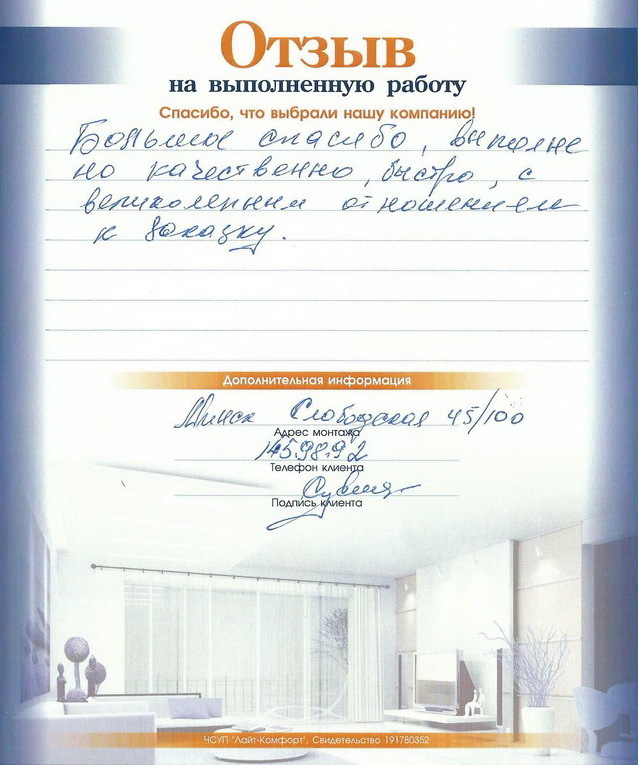 Отзыв
на выполненную работу
Спасибо, что выбрали нашу компанию!
Большое спасибо, выполне
но качественно, быстро, с
великолепным отношением
к заказку.
Дополнительная информация
Минск Слободская 45/100
Адрес монтажа
145.98.92
Телефон клиента
Подпись клиента
ЧСУП "Лайт-Комфорт", Свидетельство 191780352